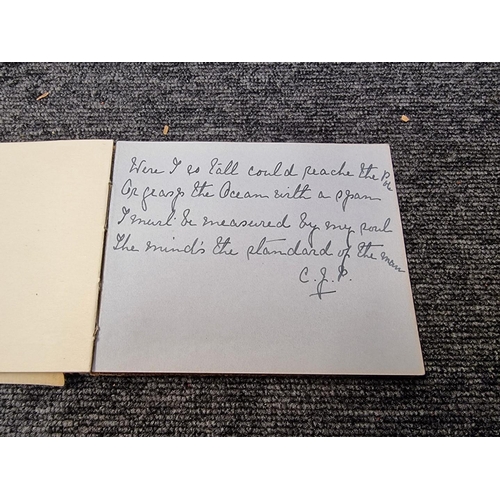 Were I so Tall could reache the Pole
Or grasp the Ocean with a span
I must be measured by my soul
The mind's the standard of the man
C. J. P.